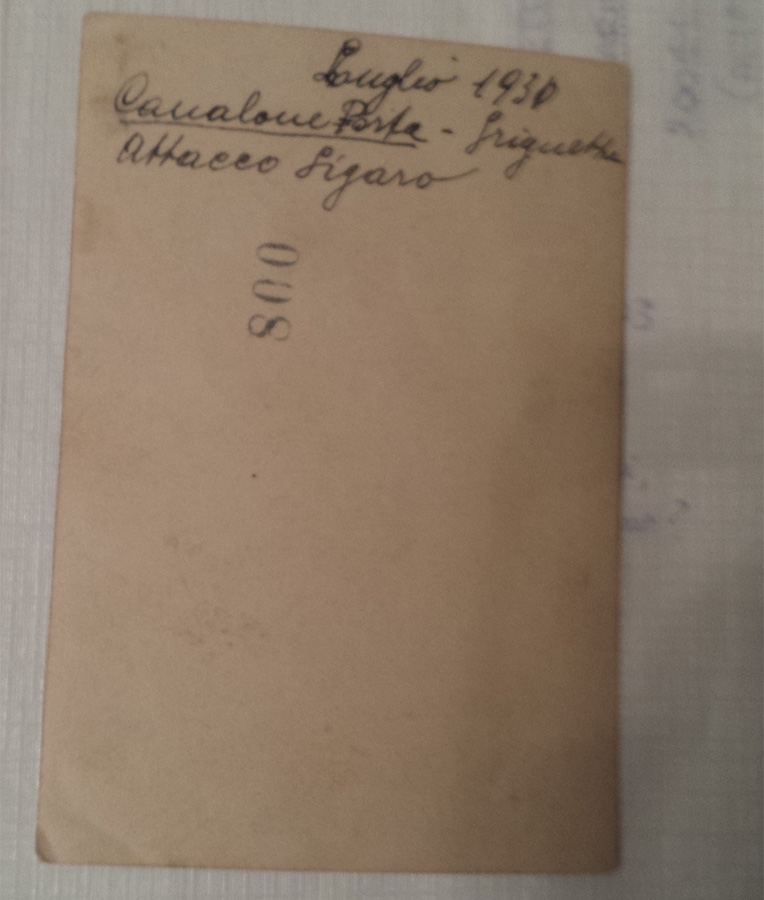 Luglio 1930
Canalone Porta - Grignetta
Attacco Sigaro
800